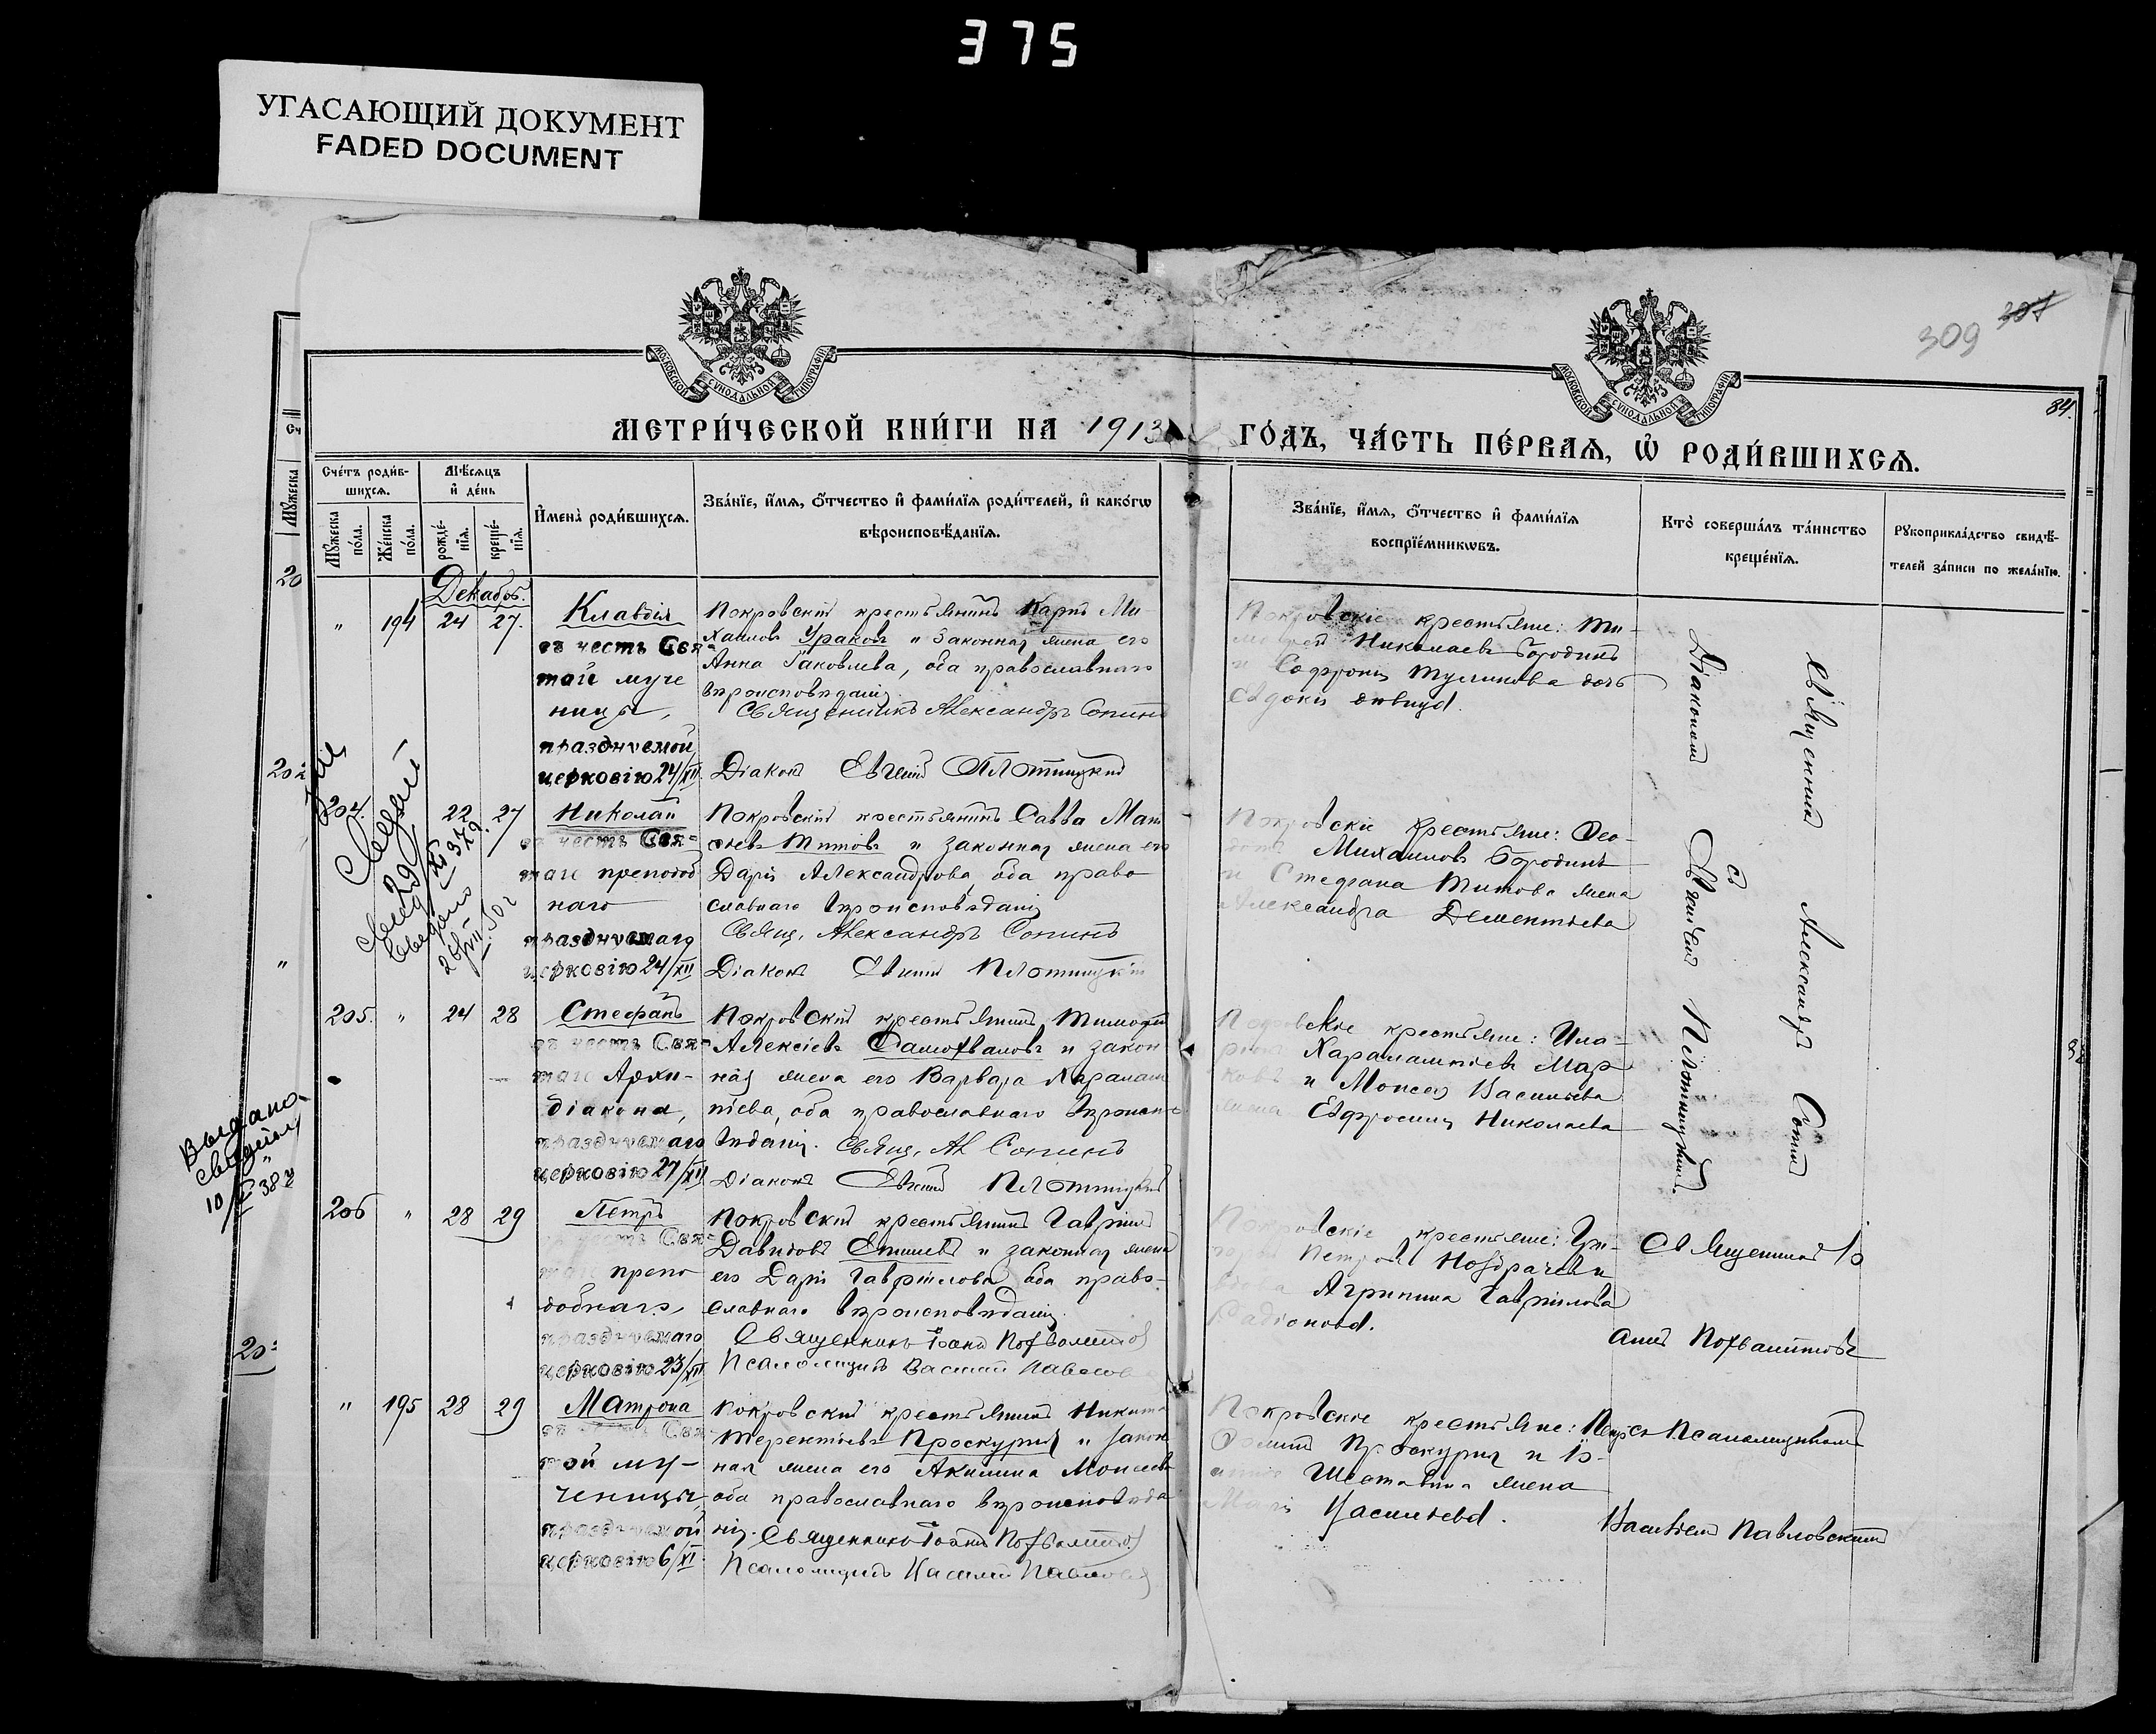 375
УГАСАЮЩИЙ ДОКУМЕНТ
FADED DOCUMENT
МОСКОВСКОЙ СѴНОДАЛЬНОЙ ТИПОГРАФІИ
МОСКОВСКОЙ СѴНОДАЛЬНОЙ ТИПОГРАФІИ
309 307
84.
МЕТРИ́ЧЕСКОЙ КНИ́ГИ НА 1913 ГО́ДЪ, ЧА́СТЬ ПЕ́РВАѦ, Ѡ҆ РОДИ́ВШИХСѦ.
Сче́тъ роди́в-
шихсѧ.
Мꙋ́жеска
по́ла.
Же́нска
по́ла.
Мѣ́сѧцъ
и҆ де́нь
рожде́-
нїѧ.
креще́-
нїѧ.
И҆мена̀ роди́вшихсѧ.
Зва́нїе, и҆́мѧ, ѻ҆́тчество и҆ фами́лїѧ роди́телей, и҆ како́гѡ
вѣроисповѣ́данїѧ.
Зва́нїе, и҆́мѧ, ѻ҆́тчество и҆ фами́лїѧ
воспрїе́мникѡвъ.
Кто̀ соверша́лъ та́инство
креще́нїѧ.
Рꙋкоприкла́дство свидѣ́-
телей за́писи по жела́нїю.
Декабрь.
" 194 24 27.
Клавдія
въ честь Свя-
той муче
ницы,
празднуемой
церковію 24/XII
Покровскій крестьянинъ Карпъ Ми-
хаиловъ Ураковъ и законная жена его
Анна Іаковлева, оба православнаго
вѣроисповѣданія.
Священникъ Александръ Сопинъ
Діаконъ Евгеній Плотницкій
Покровскіе крестьяне: Ти-
Николаевъ Бородинъ
и Софронія Туликова дочь
Евдокія девица.
204. 22 27
Николай
въ честь Свя-
таго преподоб
наго
празднуемаго
церковію 24/XII
Покровскій крестьянинъ Савва Мат
ѳеевъ Титовъ и законная жена его
Дарія Александрова, оба право
славнаго вѣроисповѣданія
Свящ. Александръ Сопинъ
Діаконъ Евгеній Плотницкій
Покровскіе крестьяне: Ѳео-
дотъ Михаиловъ Бородинъ
и Стефана Титова жена
Александра Дементьева
205. " 24 28
Стефанъ
въ честь Свя-
таго Архи-
діакона,
празднуемаго
церковію 27/XII
Покровскій крестьянинъ Тимофей
Алексіевъ Самохваловъ и закон
ная жена его Варвара Харалам
піева, оба православнаго вѣроиспо-
вѣданія. Свящ. Ал Сопинъ
Діаконъ Евгеній Плотницкій
Покровскіе крестьяне: Ила-
ріонъ Харалампіевъ Мар
ковъ и Моисея Васильева
жена Евфросинія Николаева
Діакономъ Евгеніемъ Плотницкимъ.
Священникъ Александръ Сопинъ
съ
206 " 28 29
Петръ
въ честь Свя-
таго препо
добнаго,
празднуемаго
церковію 23/XII
Покровскій крестьянинъ Гавріилъ
Давидовъ и законная жена
его Дарія Гавріилова оба право-
славнаго вѣроисповѣданія.
Священникъ Іоаннъ Похвалитовъ
Псаломщикъ Василій Павловскій
Покровскіе крестьяне: Гри-
горій Петровъ Ноздрачевъ и
вдова Агрипина Гавріилова
Радіонова.
Священникъ Іо
аннъ Похвалитовъ
" 195 28 29
Матрона
въ честь Свя-
той му-
ченицы,
празднуемой
церковію 6/XI
Покровскій крестьянинъ Никита
Терентіевъ Проскурня и закон
ная жена его Акилина Моисеева
оба православнаго вѣроисповѣда
нія. Священникъ Іоаннъ Похвалитовъ
Псаломщикъ Василій Павловскій
Покровскіе крестьяне:
Проскурня и Іо-
Шестакина жена
Марія Васильева.
съ Псаломщикомъ
Василіемъ Павловскимъ
Выдано
10
38 г